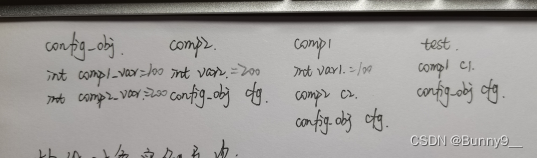 config_obj. comp2. comp1 test.
int comp1_var=100 int var2.=200 int var1.=100 comp1 c1.
int comp2_var=200 config_obj cfg. comp2 c2. config_obj cfg.
config_obj cfg.
CSDN @Bunny9__